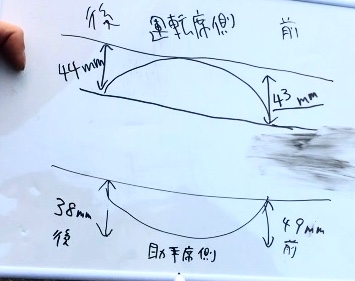 後 運転席側 前
44mm
43 mm
38mm
後
49mm
前
助手席側